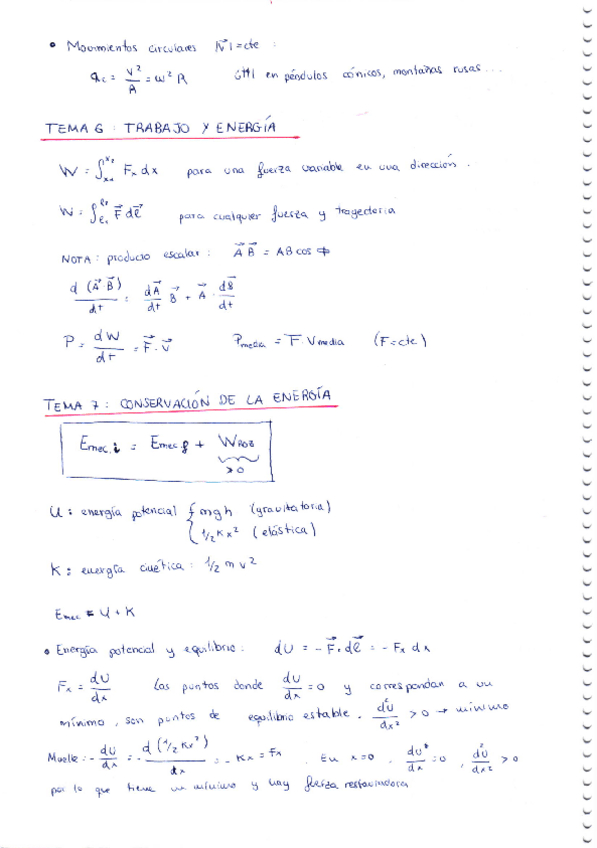 • Movimientos circulares |V⃗| = cte :
ac = v²/R = ω² R en péndulos cónicos, montañas rusas...
TEMA 6 : TRABAJO Y ENERGÍA
W = ∫x₁^x₂ Fx dx para una fuerza variable en una dirección.
W = ∫e₁^e₂ F⃗ dℓ⃗ para cualquier fuerza y trayectoria
NOTA : producto escalar : A⃗ B⃗ = AB cos ϕ
d (A⃗ B⃗)/dt = dA⃗/dt B⃗ + A⃗ · dB⃗/dt
P = dW/dt = F⃗ · v⃗ Pmedia = F · Vmedia (F = cte)
TEMA 7 : CONSERVACIÓN DE LA ENERGÍA
Emec.i = Emec.f + WROZ
>0
U : energía potencial { mgh (gravitatoria)
1/2 Kx² (elástica)
K : energía cinética : 1/2 m v²
Emec = U + K
• Energía potencial y equilibrio : dU = - F⃗ · dℓ⃗ = - Fx dx
Fx = dU/dx Los puntos donde dU/dx = 0 y correspondan a un
mínimo, son puntos de equilibrio estable. d²U/dx² > 0 → mínimo
Muelle : - dU/dx = - d (1/2 Kx²)/dx = - Kx = Fx . En x=0 , dU/dx = 0 , d²U/dx² > 0
por lo que tiene un mínimo y hay fuerza restauradora